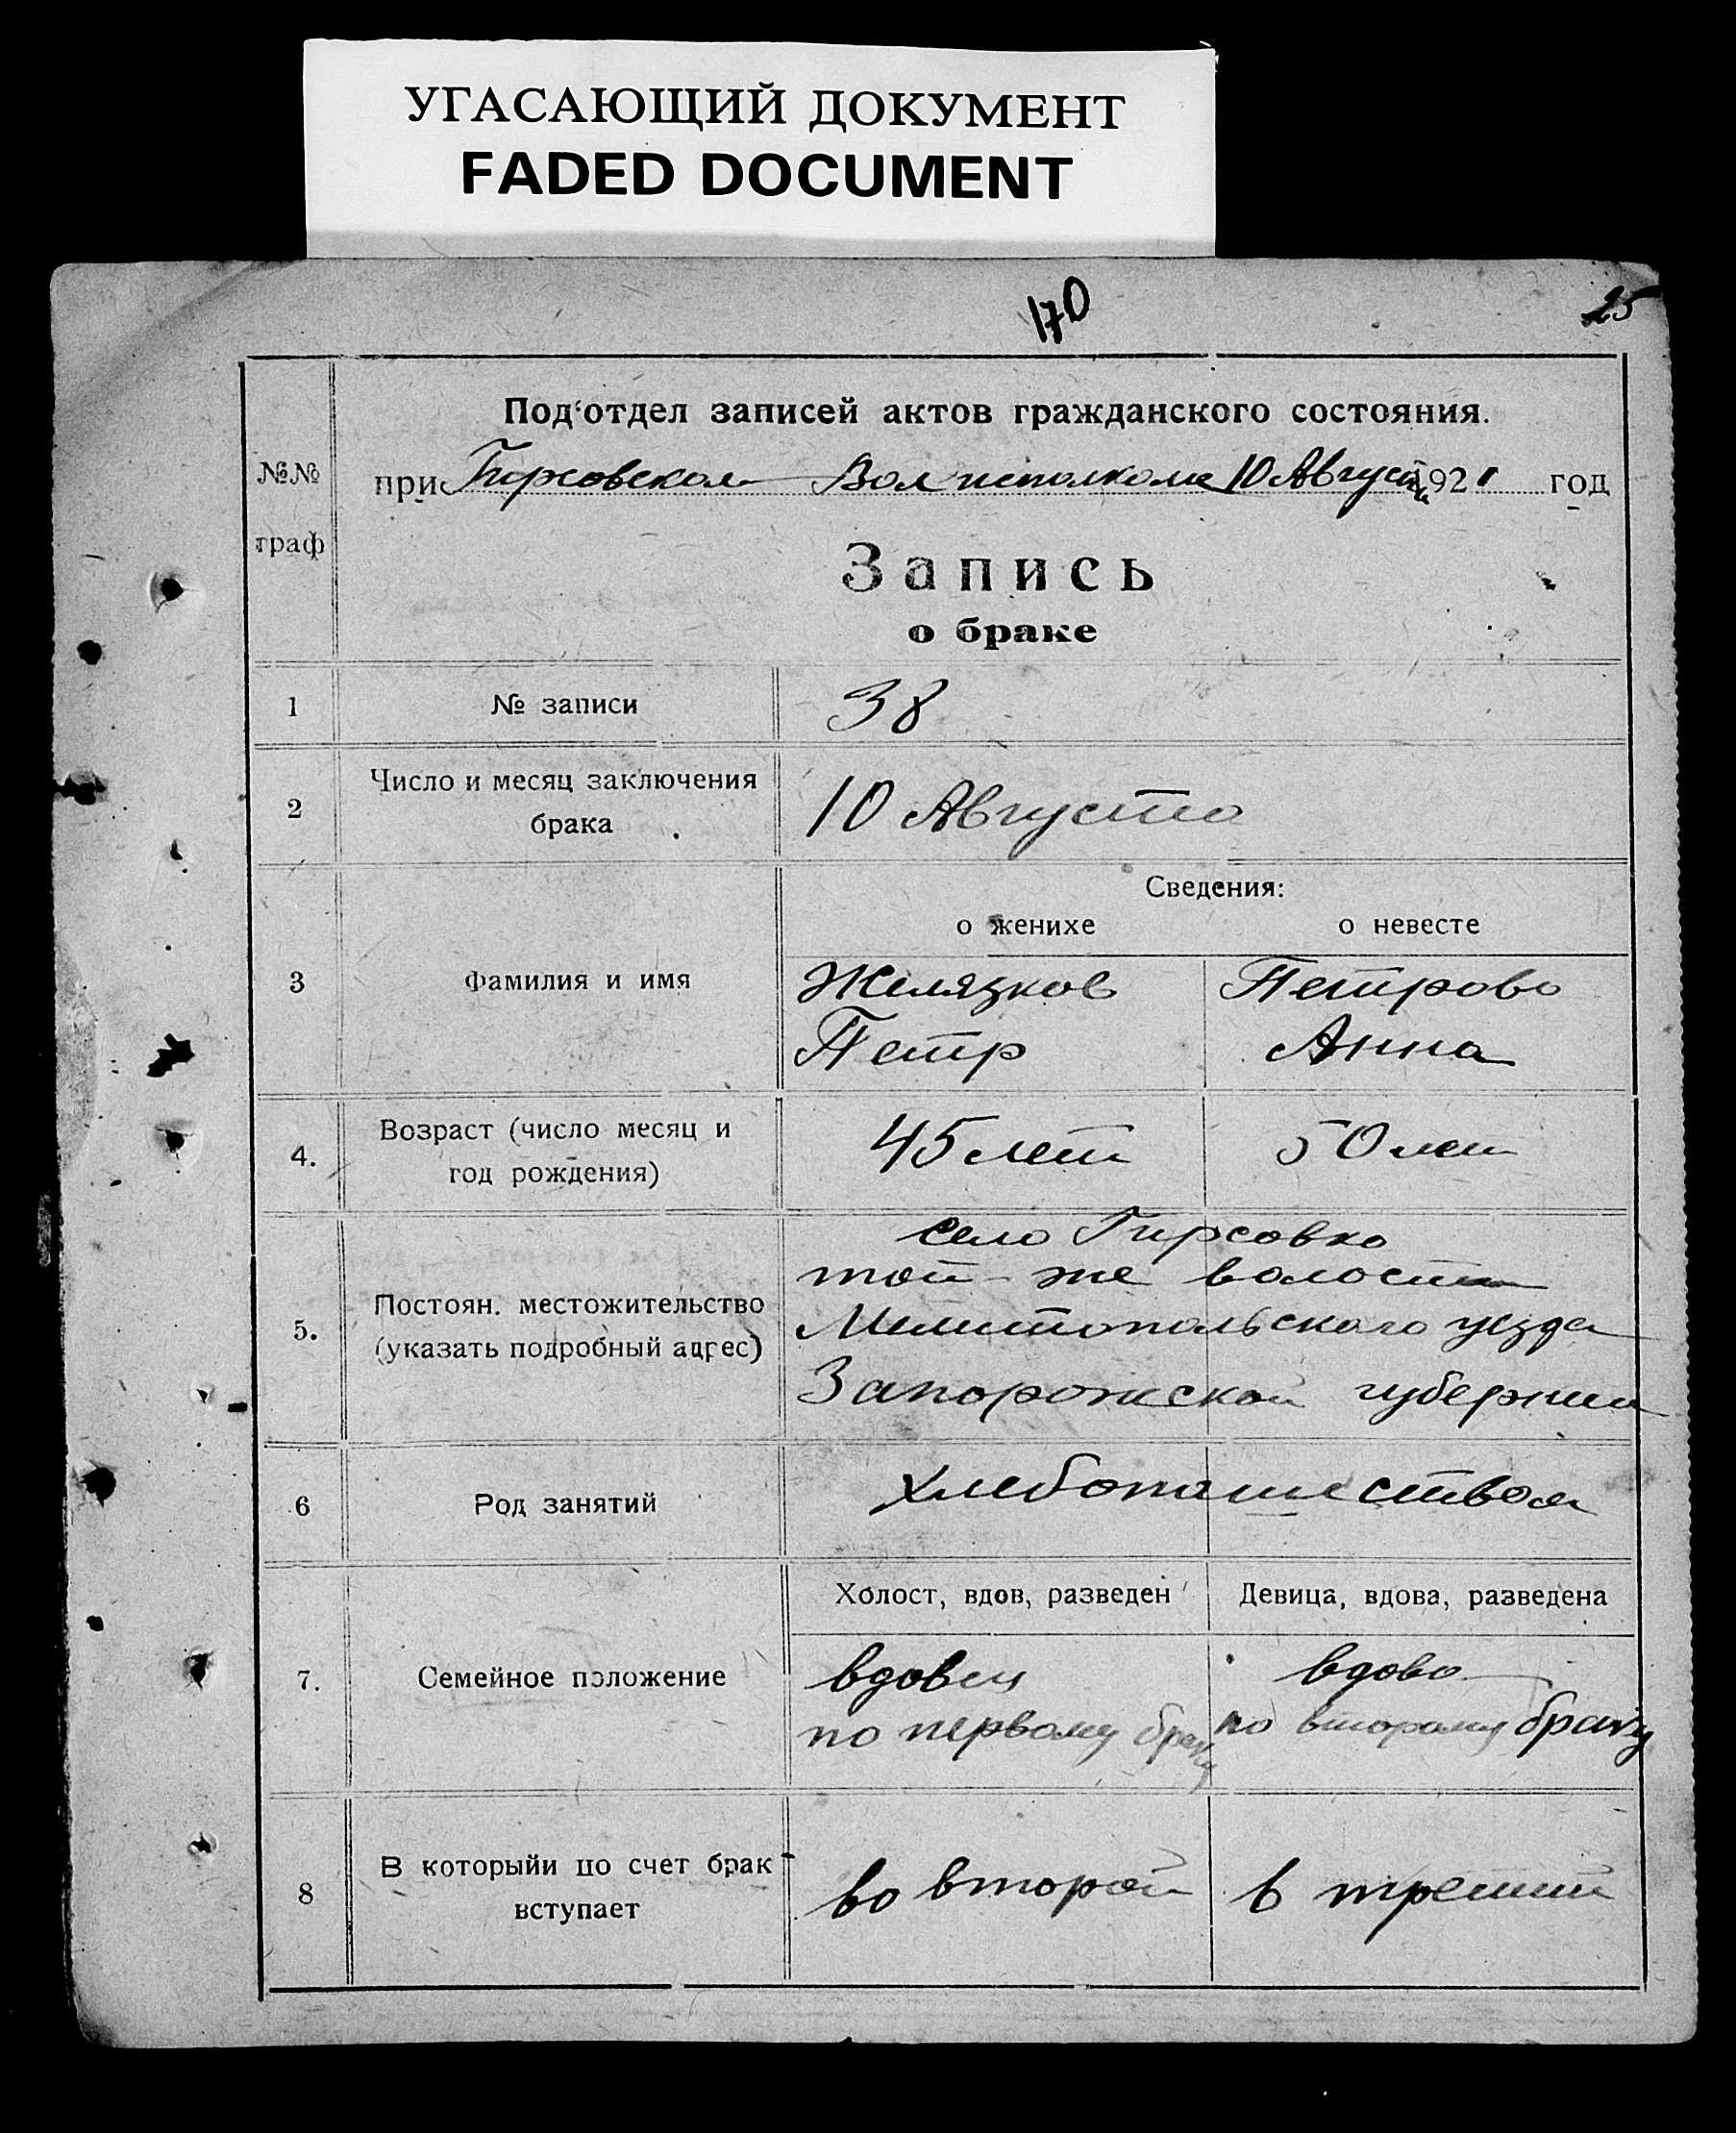 УГАСАЮЩИЙ ДОКУМЕНТ
FADED DOCUMENT
170
25
Под'отдел записей актов гражданского состояния.
№№
граф
при Гирсовском Волисполкоме 10 Августа 1921 год
Запись
о браке
1 № записи 38
2 Число и месяц заключения
брака
10 Августа
Сведения:
о женихе о невесте
3 Фамилия и имя
Желязков Петрова
Петр Анна
4. Возраст (число месяц и
год рождения)
45 лет 50 лет
5. Постоян. местожительство
(указать подробный адрес)
село Гирсовка
той-же волости
Мелитопольского уезда
Запорожской губернии
6 Род занятий
хлебопашеством
Холост, вдов, разведен Девица, вдова, разведена
7. Семейное положение
вдовец вдова
по первому браку по второму браку
8 В которыйи по счет брак
вступает
во второй в третий